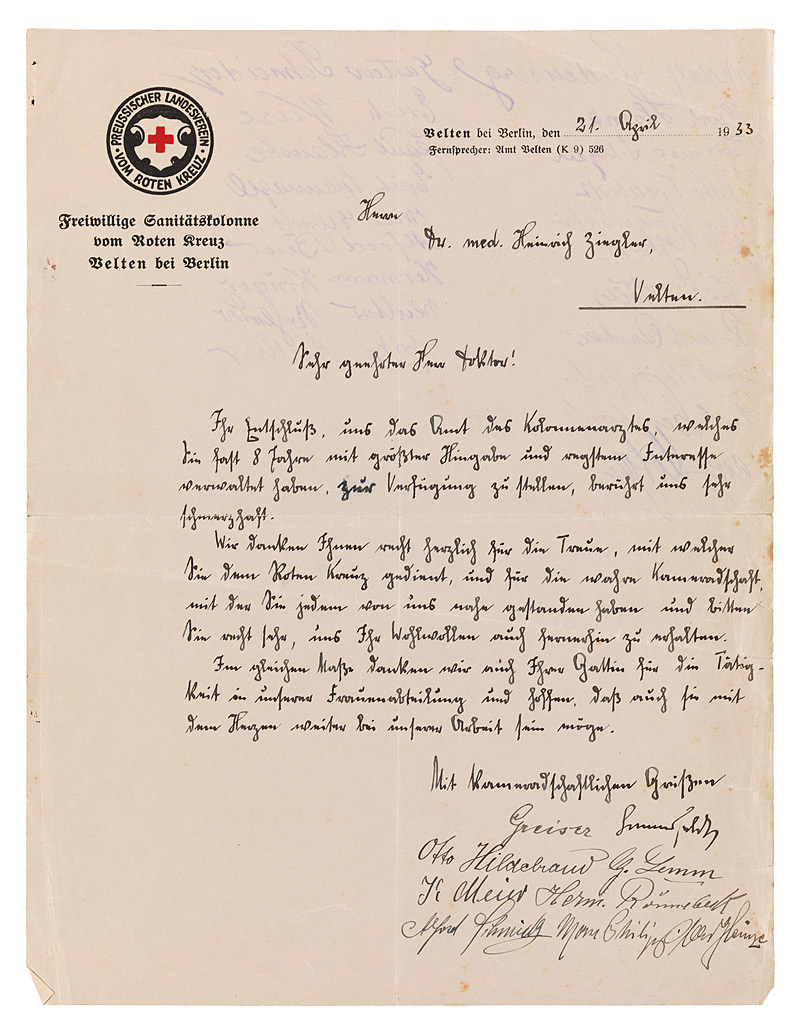 PREUSSISCHER LANDESVEREIN
VOM ROTEN KREUZ
Freiwillige Sanitätskolonne
vom Roten Kreuz
Velten bei Berlin
Velten bei Berlin, den 21. April 1933
Fernsprecher: Amt Velten (K 9) 526
Herrn
Dr. med. Heinrich Ziegler,
Velten.
Sehr geehrter Herr Doktor!
Ihr Entschluß, uns das Amt des Kolonnenarztes, welches
Sie fast 8 Jahre mit größter Hingabe und regstem Interesse
verwaltet haben, zur Verfügung zu stellen, berührt uns sehr
schmerzhaft.
Wir danken Ihnen recht herzlich für die Treue, mit welcher
Sie dem Roten Kreuz gedient, und für die wahre Kameradschaft,
mit der Sie jedem von uns nahe gestanden haben und bitten
Sie recht sehr, uns Ihr Wohlwollen auch fernerhin zu erhalten.
Im gleichen Maße danken wir auch Ihrer Gattin für die Tätig-
keit in unserer Frauenabteilung und hoffen, daß auch sie mit
dem Herzen weiter bei unserer Arbeit sein möge.
Mit kameradschaftlichen Grüßen
Greiser
Otto Hildebrand G. Lemm
K Meier Herm.
Alfred Schmidt